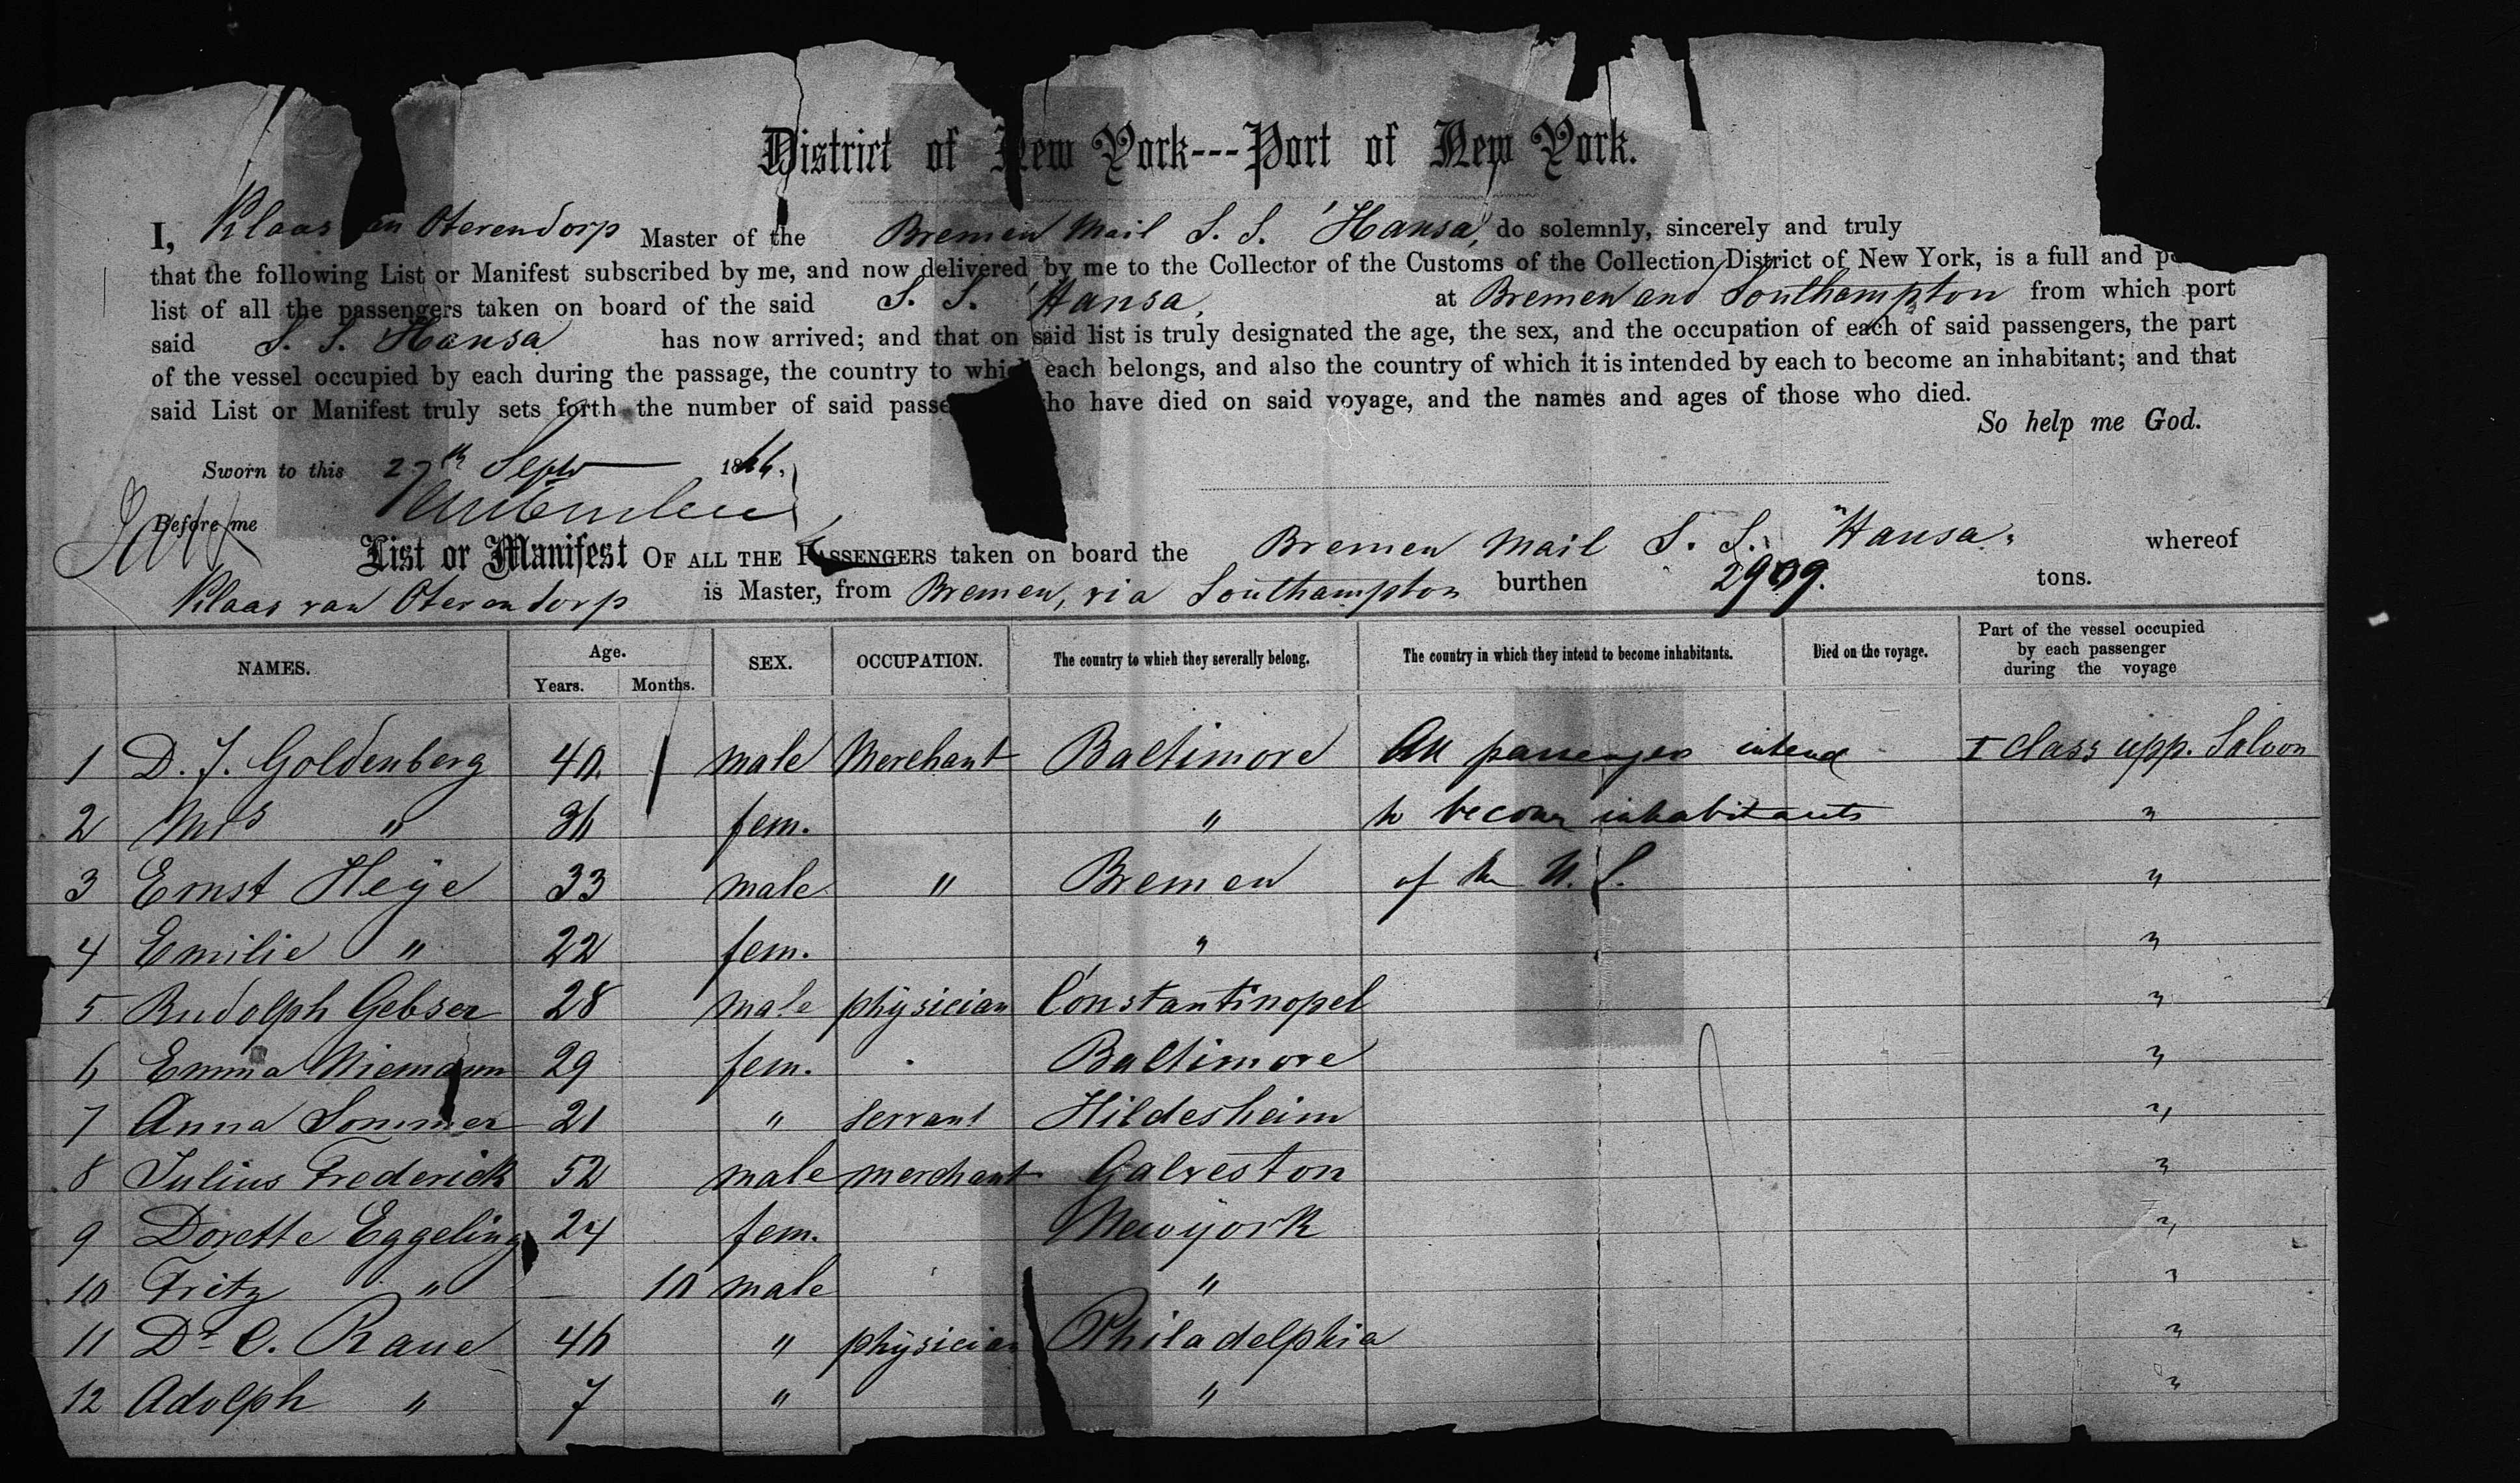 District of New York---Port of New York.
I, Klaas van Oterendorp Master of the Bremen Mail S. S. "Hansa", do solemnly, sincerely and truly
that the following List or Manifest subscribed by me, and now delivered by me to the Collector of the Customs of the Collection District of New York, is a full and
list of all the passengers taken on board of the said S. S. "Hansa, at Bremen and Southampton from which port
said S. S. Hansa has now arrived; and that on said list is truly designated the age, the sex, and the occupation of each of said passengers, the part
of the vessel occupied by each during the passage, the country to which each belongs, and also the country of which it is intended by each to become an inhabitant; and that
said List or Manifest truly sets forth the number of said who have died on said voyage, and the names and ages of those who died.
So help me God.
Sworn to this 27th Sept 1866,
Before me
List or Manifest OF ALL THE PASSENGERS taken on board the Bremen Mail S. S. "Hansa" whereof
Klaas van Oterendorp is Master, from Bremen, via Southampton burthen 2909. tons.
NAMES. Age. Years. Months. SEX. OCCUPATION. The country to which they severally belong. The country in which they intend to become inhabitants. Died on the voyage. Part of the vessel occupied by each passenger during the voyage
1 D. J. Goldenberg 40. male Merchant Baltimore All passengers intend I Class upp. Saloon
2 Mrs " 36 fem. " to become inhabitants "
3 Ernst Heÿe 33 male " Bremen of the U. S. "
4 Emilie " 22 fem. " "
5 Rudolph Gebser 28 male phÿsician Constantinopel "
6 Emma Niemann 29 fem. Baltimore "
7 Anna Sommer 21 " servant Hildesheim "
8 Julius Frederick 52 male merchant Galveston "
9 Dorette Eggeling 24 fem. Newÿork "
10 Fritz " — 10 male " "
11 Dr C. Raue 46 " phÿsician Philadelphia "
12 Adolph " 7 " " "